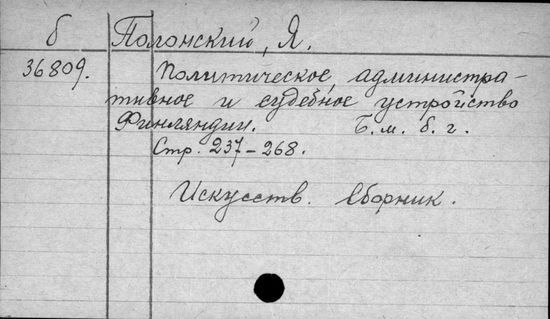 б Полонский, Я.
36809. Политическое, администра-
тивное и судебное устройство
Финляндии. Б.м. б.г.
Стр. 237-268.
Искусств. Сборник.